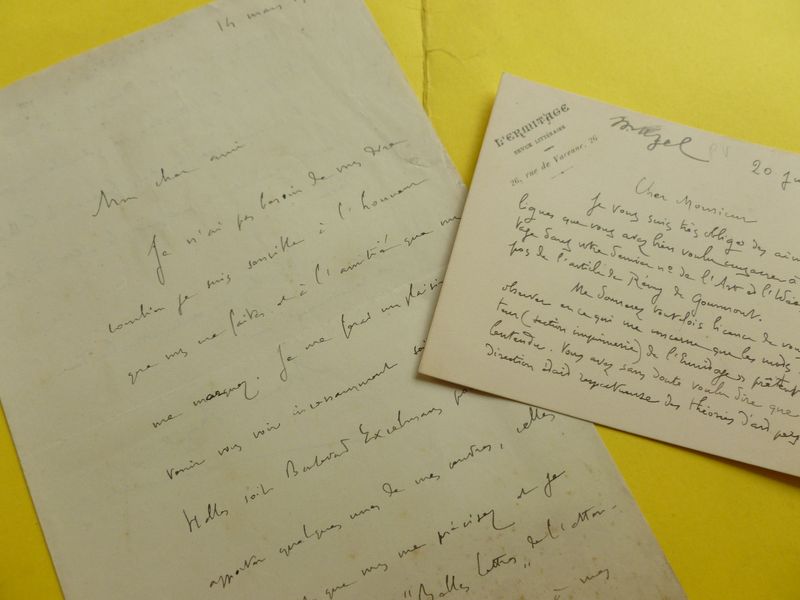 14 mars
Mon cher ami
Je n'ai pas besoin de vous dire
combien je suis sensible à l'honneur
que vous me faites et à l'amitié que vous
me marquez. Je me ferai un plaisir
venir vous voir incessamment soit
Halles soit Boulevard Excelmans pour
apporter quelques unes de mes œuvres, celles
que vous me préciserez et je
"Belles lettres" de l'
à mes
L'ERMITAGE
REVUE LITTÉRAIRE
26, rue de Varenne, 26
Mazel
20 Ju
Cher Monsieur
Je vous suis très obligé des aim
lignes que vous avez bien voulu consacrer à
tage dans votre dernier n° de l'Art et l'Idée
pos de l'article de Rémy de Gourmont.
Me donnerez vous licence de vous
observer en ce qui me concerne que les mots
teur (section imprimerie) de l'Ermitage prêtent
l'entendre. Vous avez sans doute voulu dire que
Direction était respectueuse des théories d'art